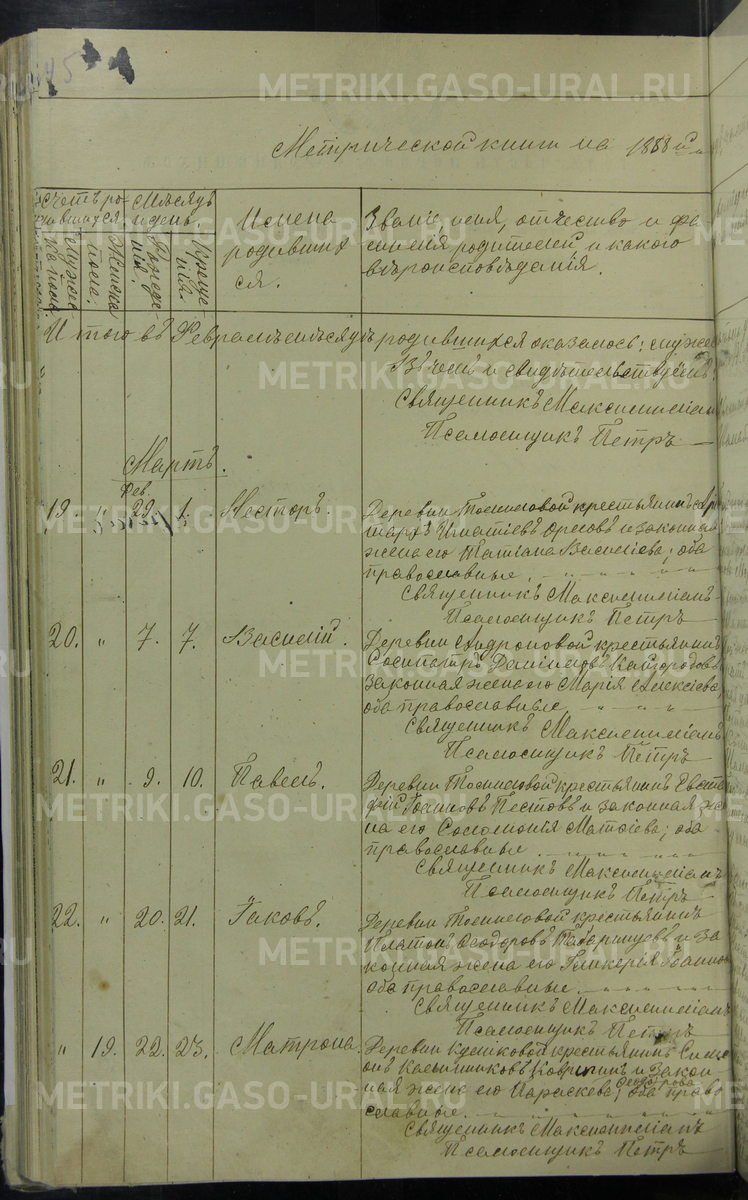 45
METRIKI.GASO-URAL.RU
Метрической книги на 1888й
Счетъ ро-
дившихся.
Мѣсяцъ
и день.
Мужес
ка пола.
Женска
пола.
Рожде-
нія.
Креще-
нія.
Имена
родивших
ся.
Званіе, имя, отчество и фа-
милія родителей и какого
вѣроисповѣданія.
Итого въ Февралѣ мѣсяцѣ родившихся оказалось: муже
Въ чемъ и свидѣтельствуемъ:
Священникъ Максимиліан
Псаломщикъ Петръ
Мартъ.
Фев.
19. " 29. 1. Несторъ.
Деревни крестьянинъ
Игнатіевъ Орловъ и законная
жена его Татіана Василіева; оба
православные.
Священникъ Максимиліанъ
Псаломщикъ Петръ
20. " 7. 7. Василій.
Деревни Андроновой крестьянинъ
Сосипатръ Даніиловъ Кайгородовъ
законная жена его Марія Алексіева
оба православные.
Священникъ Максимиліанъ
Псаломщикъ Петръ
21. " 9. 10. Павелъ.
Деревни крестьянинъ Евста
фій Іоанновъ Пестовъ и законная же
на его Соломонія Матѳіева; оба
православные
Священникъ Максимиліанъ
Псаломщикъ Петръ
22. " 20. 21. Іаковъ.
Деревни крестьянинъ
Платонъ Ѳеодоровъ и за
конная жена его Гликерія Іоаннов
оба православные.
Священникъ Максимиліанъ
Псаломщикъ Петръ
" 19. 22. 23. Матрона.
Деревни крестьянинъ Симе
онъ Калинниковъ и закон
ная жена его Параскева Ѳеодорова; оба право
славные.
Священникъ Максимиліанъ
Псаломщикъ Петръ